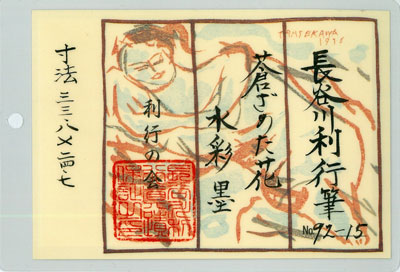 長谷川利行筆
蒼ざめた花
水彩 墨
利行の会
寸法 三三・八×二四・七
No.92-15
HASEKAWA